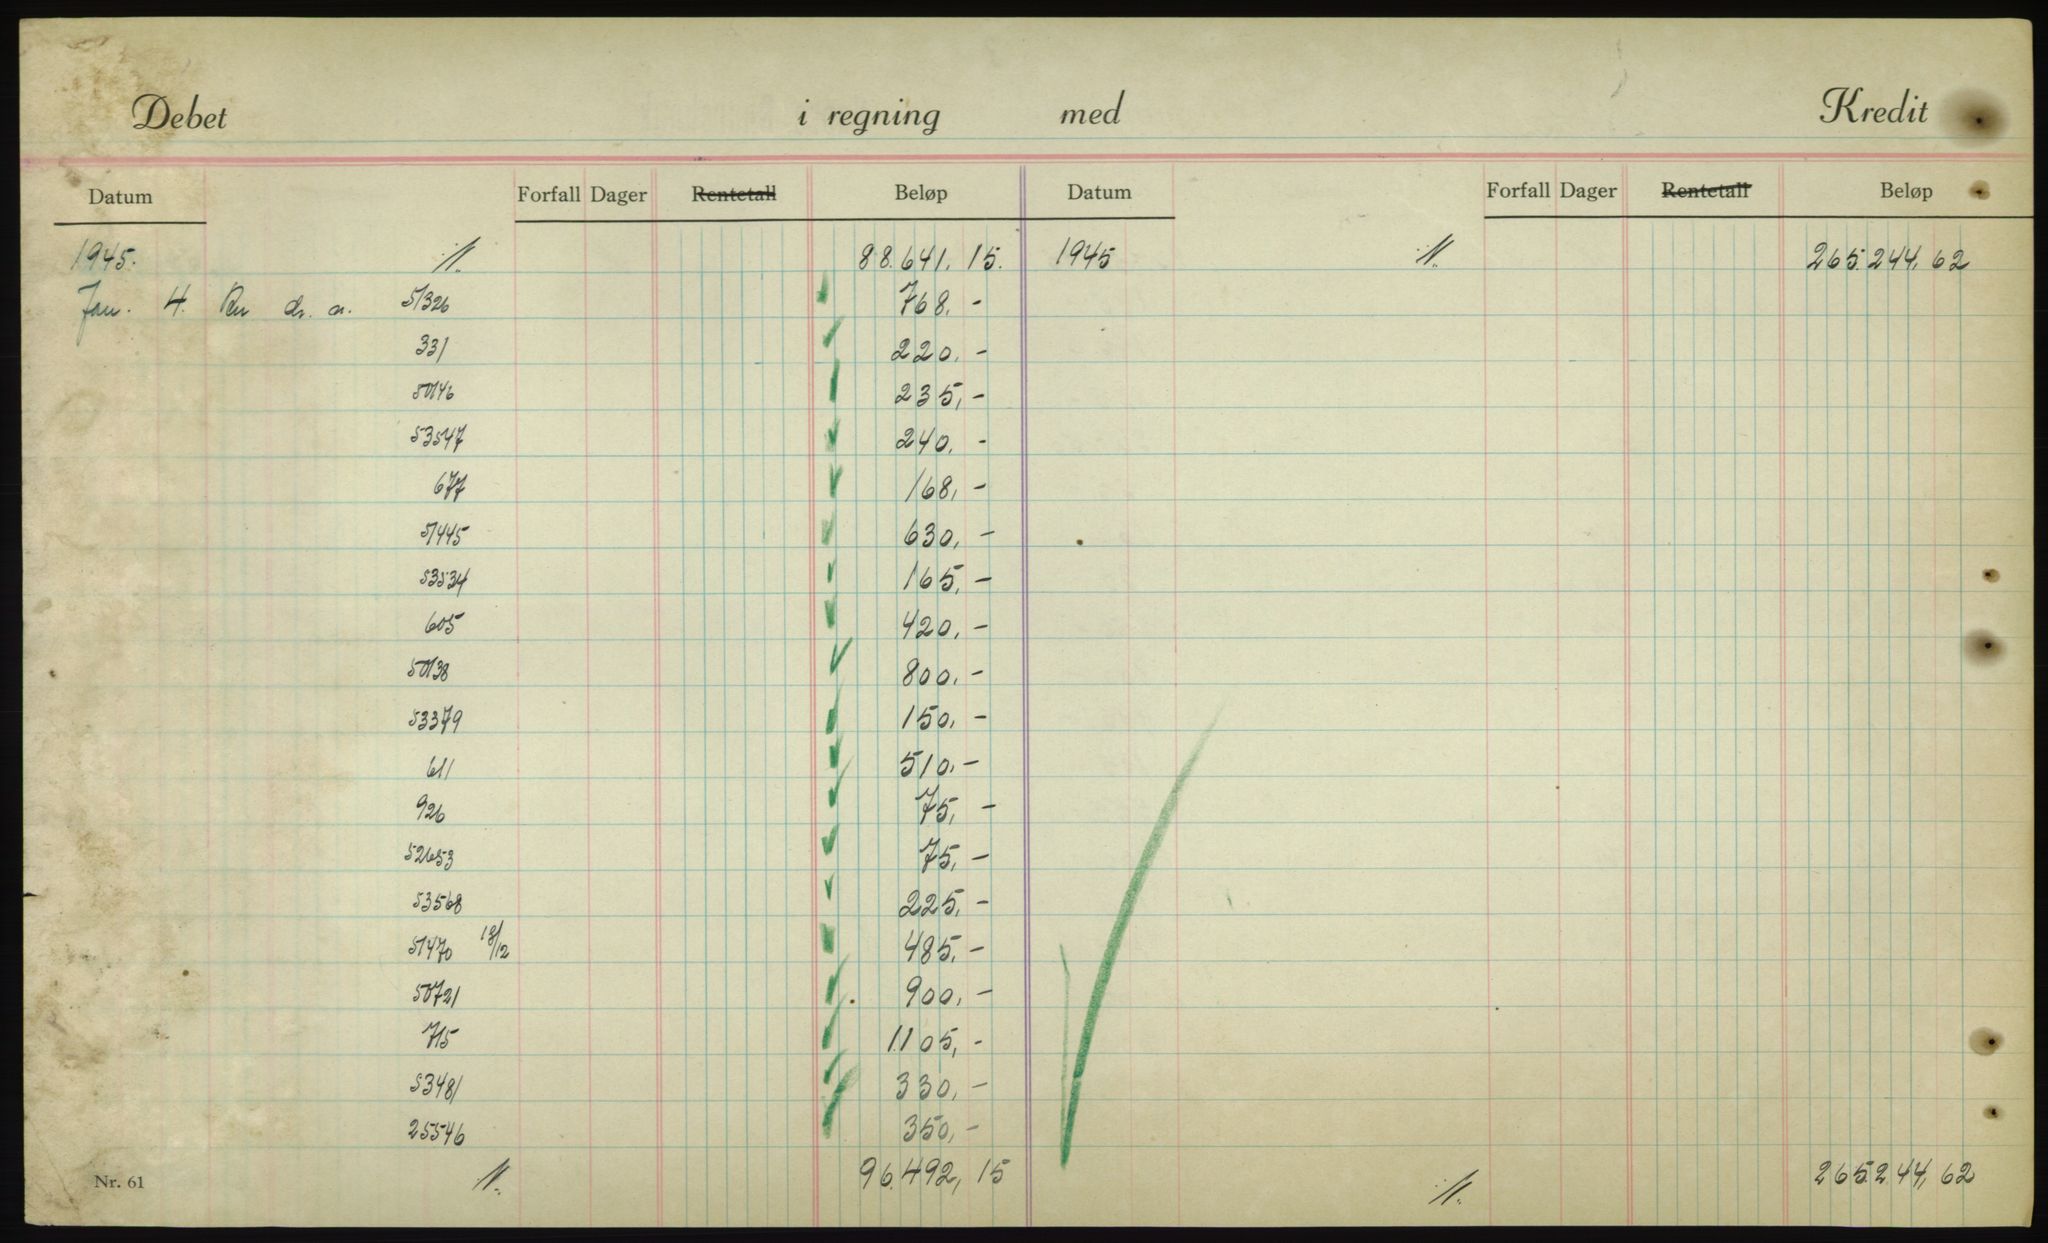 Debet i regning med Kredit
Datum Forfall Dager Rentetall Beløp Datum Forfall Dager Rentetall Beløp
1945. 88.641,15. 1945 265.244,62
Jan. 4. 51326 768,-
331 220,-
50146 235,-
53547 240,-
677 168,-
51445 630,-
53534 165,-
605 420,-
50138 800,-
53379 150,-
611 510,-
926 75,-
52653 75,-
53568 225,-
51470 18/12 485,-
50721 900,-
715 1.105,-
53481 330,-
25546 350,-
Nr. 61 96.492,15 265.244,62